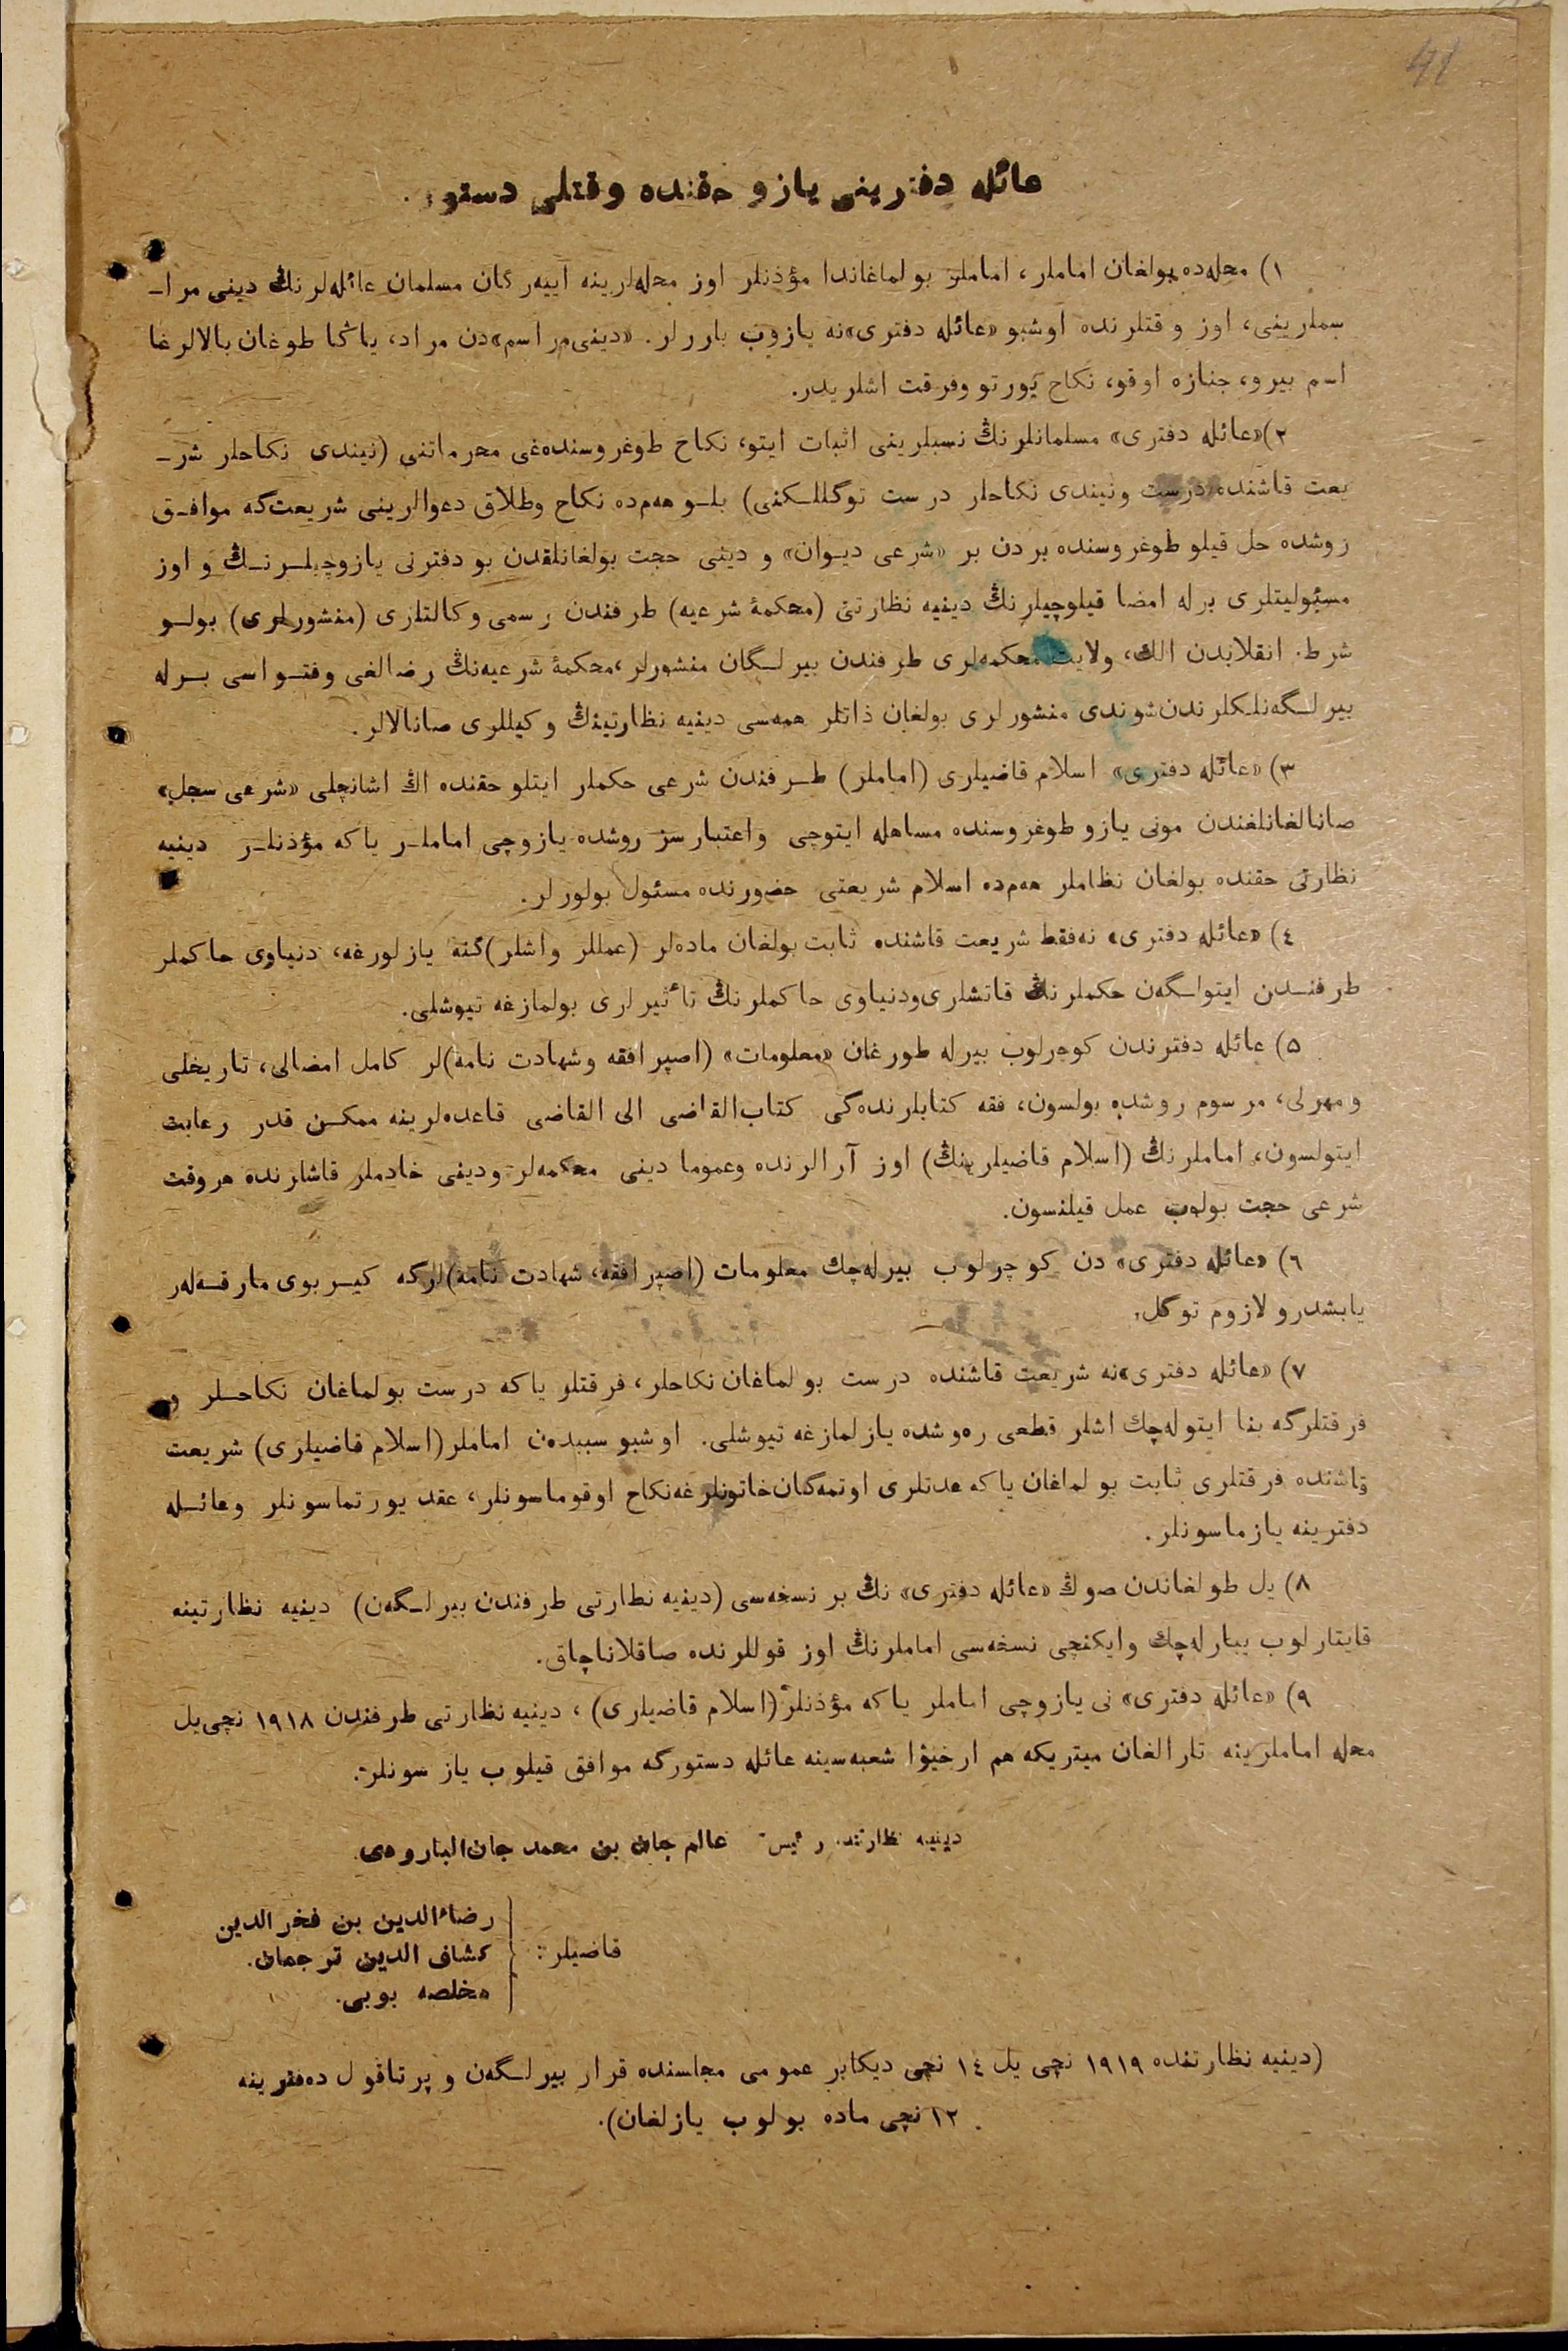 41
عائله دفترينى يازو حقنده وقتلى دستور.
١) محله‌ده بولغان اماملر، اماملر بولماغاندا مؤذنلر اوز محله‌لرينه اييه‌رگان مسلمان عائله‌لرنڭ دينى مرا-
سملرينى، اوز وقتلرنده اوشبو «عائله دفترى»نه يازوب باررلر. «دينى مراسم»دن مراد، ياڭا طوغان بالالرغا
اسم بيرو، جنازه اوقو، نكاح يورتو وفرقت اشلريدر.
٢)«عائله دفترى» مسلمانلرنڭ نسبلرينى اثبات ايتو، نكاح طوغروسنده‌غى محرماتنى (نيندى نكاحلر شر-
يعت قاشنده درست ونيندى نكاحلر درست توگللـكنى) بلـو هه‌م‌ده نكاح وطلاق دعوالرينى شريعت‌كه موافـق
روشده حل قيلو طوغروسنده بردن بر «شرعى ديـوان» و دينى حجت بولغانلقدن بو دفترنى يازوچيلـرنـڭ و اوز
مسئوليتلرى برله امضا قيلوچيلرنڭ دينيه نظارتى (محكمۀ شرعيه) طرفندن رسمى وكالتلرى (منشورلرى) بولـو
شرط. انقلابدن الك، ولايت محكمه‌لرى طرفندن بيرلـگان منشورلر، محكمۀ شرعيه‌نڭ رضالغى وفتـواسى بـرله
بيرلـگه‌نلـكلرندن شوندى منشورلرى بولغان ذاتلر همه‌سى دينيه نظارتينڭ وكيللرى صانالالر.
٣) «عائله دفترى» اسلام قاضيلرى (اماملر) طـرفندن شرعى حكملر ايتلو حقنده اڭ اشانچلى «شرعى سجل»
صانالغانلغندن مونى يازو طوغروسنده مساهله ايتوچى واعتبارسز روشده يازوچى اماملـر ياكه مؤذنلـر دينيه
نظارتى حقنده بولغان نظاملر هه‌م‌ده اسلام شريعتى حضورنده مسئول بولورلر.
٤) «عائله دفترى» نه‌فقط شريعت قاشنده ثابت بولغان ماده‌لر (عمللر واشلر)گنه يازلورغه، دنياوى حاكملر
طرفنـدن ايتولـگه‌ن حكملرنڭ قاتشلرى‌ودنياوى حاكملرنڭ تاٴثيرلرى بولمازغه تيوشلى.
٥) عائله دفترندن كوچرلوب بيرله طورغان «معلومات» (اصپرافقه وشهادت نامه)لر كامل امضالى، تاريخلى
ومهرلى، مرسوم روشده بولسون، فقه كتابلرنده‌گى كتاب‌القاضى الى القاضى قاعده‌لرينه ممكـن قدر رعايت
ايتولسون، اماملرنڭ (اسلام قاضيلرينڭ) اوز آرالرنده وعموما دينى محكمه‌لر ودينى خادملر قاشلرنده هروقت
شرعى حجت بولوب عمل قيلنسون.
٦) «عائله دفترى» دن كوچرلوب بيرله‌چك معلومات (اصپرافقه، شهادت نامه)لركه كيـربوى مارقـه‌لر
يابشدرو لازوم توگل.
٧) «عائله دفترى»نه شريعت قاشنده درست بولماغان نكاحلر، فرقتلر ياكه درست بولماغان نكاحـلر و
فرقتلرگه بنا ايتوله‌چك اشلر قطعى ره‌وشده يازلمازغه تيوشلى. اوشبو سببدن اماملر(اسلام قاضيلرى) شريعت
قاشنده فرقتلرى ثابت بولماغان ياكه عدتلرى اوتمه‌گان خاتونلرغه نكاح اوقوماسونلر، عقد يورتماسونلر وعائـله
دفترينه يازماسونلر.
٨) يل طولغاندن صوڭ «عائله دفترى» نڭ بر نسخه‌سى (دينيه نظارتى طرفندن بيرلـگه‌ن) دينيه نظارتينه
قايتارلوب يبارله‌چك وايكنچى نسخه‌سى اماملرنڭ اوز قوللرنده صاقلاناچاق.
٩) «عائله دفترى» نى يازوچى اماملر ياكه مؤذنلر(اسلام قاضيلرى)، دينيه نظارتى طرفندن ١٩١٨ نچى‌يل
محله اماملرينه تارالغان ميتريكه هم ارخيۋا شعبه‌سينه عائله دستورگه موافق قيلوب ياز سونلر.
دينيه نظارتنده رئيس عالم جان بن محمد جان‌البارودى.
رضاءالدين بن فخرالدين
قاضيلر: كشاف الدين ترجمان.
مخلصه بوبى.
(دينيه نظارتنده ١٩١٩ نچى يل ١٤ نچى ديكابر عمومى مجلسنده قرار بيرلـگه‌ن و پرتاقول ده‌فترينه
١٢ نچى ماده بولوب يازلغان).